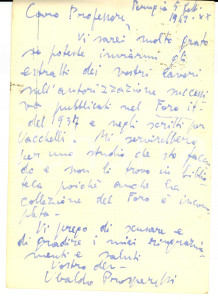 Caro Professore, Perugia 5 febb.
1942 - XX
Vi sarei molto grato
se poteste inviarmi gli
estratti dei vostri lavori
sull'autorizzazione
pubblicati nel Foro it.
del 1937 e negli scritti per
Vacchelli. Mi servirebbero
per uno studio che sto facen
do e non li trovo in biblio
teca poiché anche la
collezione del Foro è incom
pleta.
Vi prego di scusare e
di gradire i miei ringrazia
menti e saluti
Vostro dev.
Ubaldo Prosperetti